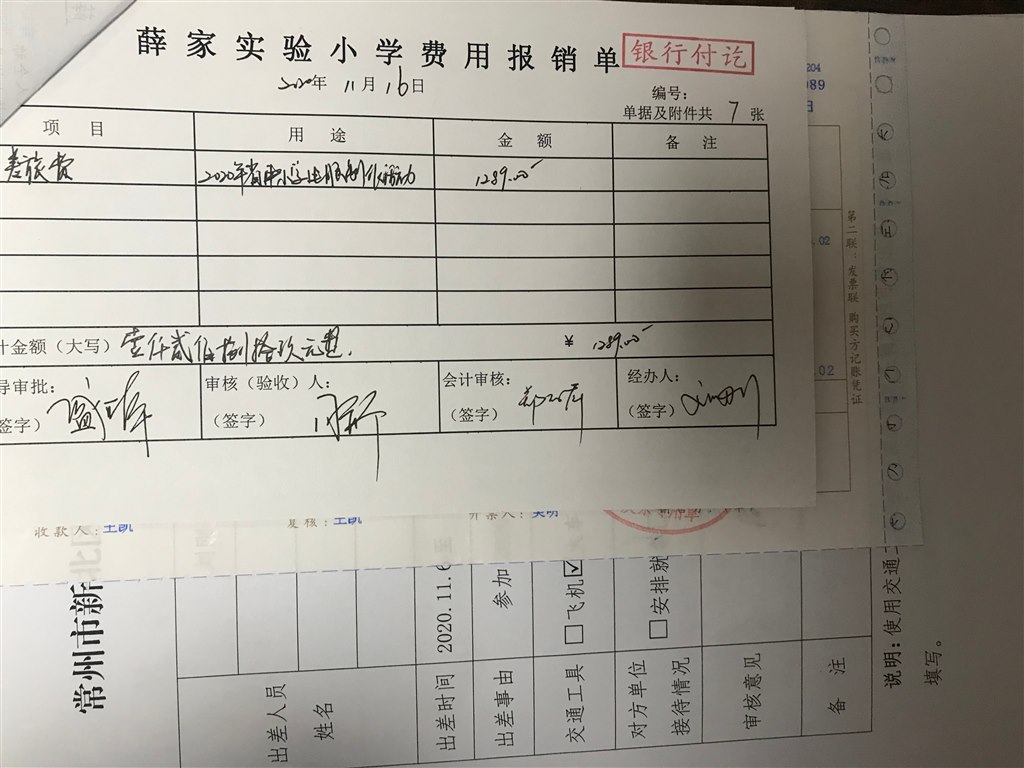 薛家实验小学费用报销单
银行付讫
2020年 11月 16日
编号：
单据及附件共 7 张
项 目
用 途
金 额
备 注
差旅费
1289.00
计金额（大写）壹仟贰佰捌拾玖元整.
¥ 1289.00
导审批：
（签字）
审核（验收）人：
（签字）
会计审核：
（签字）
经办人：
（签字）
收款人：王凯
复核：王凯
开票人：
204
089
日
.02
.02
第二联：发票联 购买方记账凭证
常州市新
出差人员
姓名
出差时间
2020.11.6
出差事由
参加
交通工具
□飞机☑
对方单位
接待情况
□安排就
审核意见
备 注
说明：使用交通工
填写。